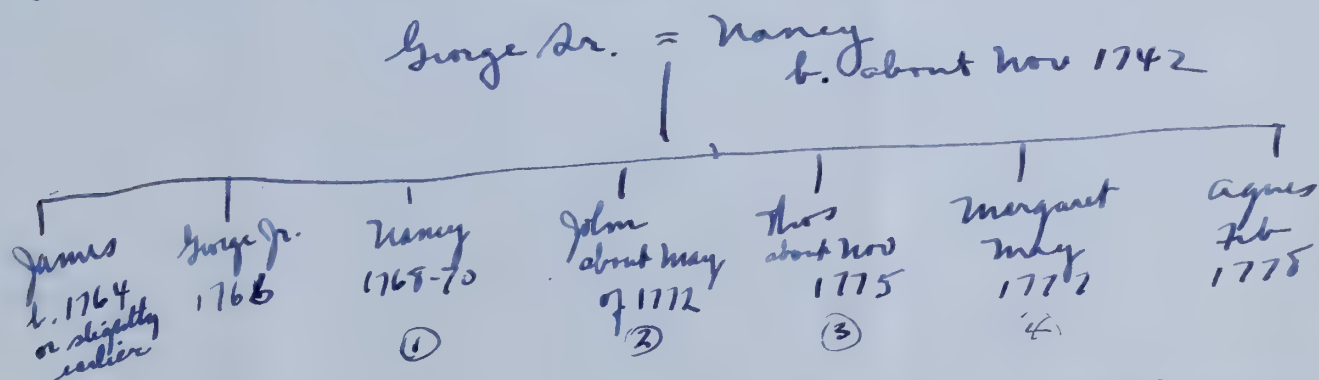 George Sr. = Nancy
b. about Nov 1742
James
b. 1764
or slightly
earlier
George Jr.
1766
Nancy
1768-70
①
John
about May
of 1772
②
Thos
about Nov
1775
③
Margaret
May
1777
4
Agnes
Feb
1778